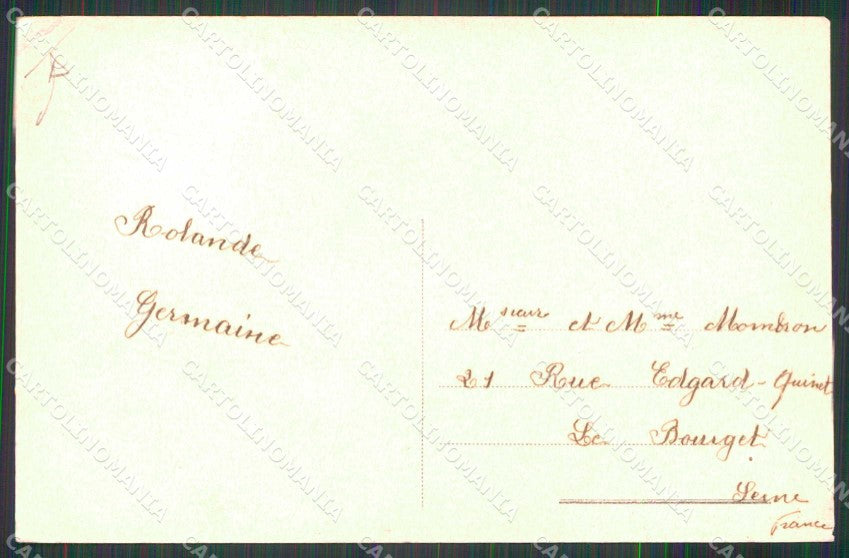 Rolande
Germaine
Msieur et Mme Mombron
21 Rue Edgard-Quinet
Le Bourget
Seine
France
CARTOLINOMANIA